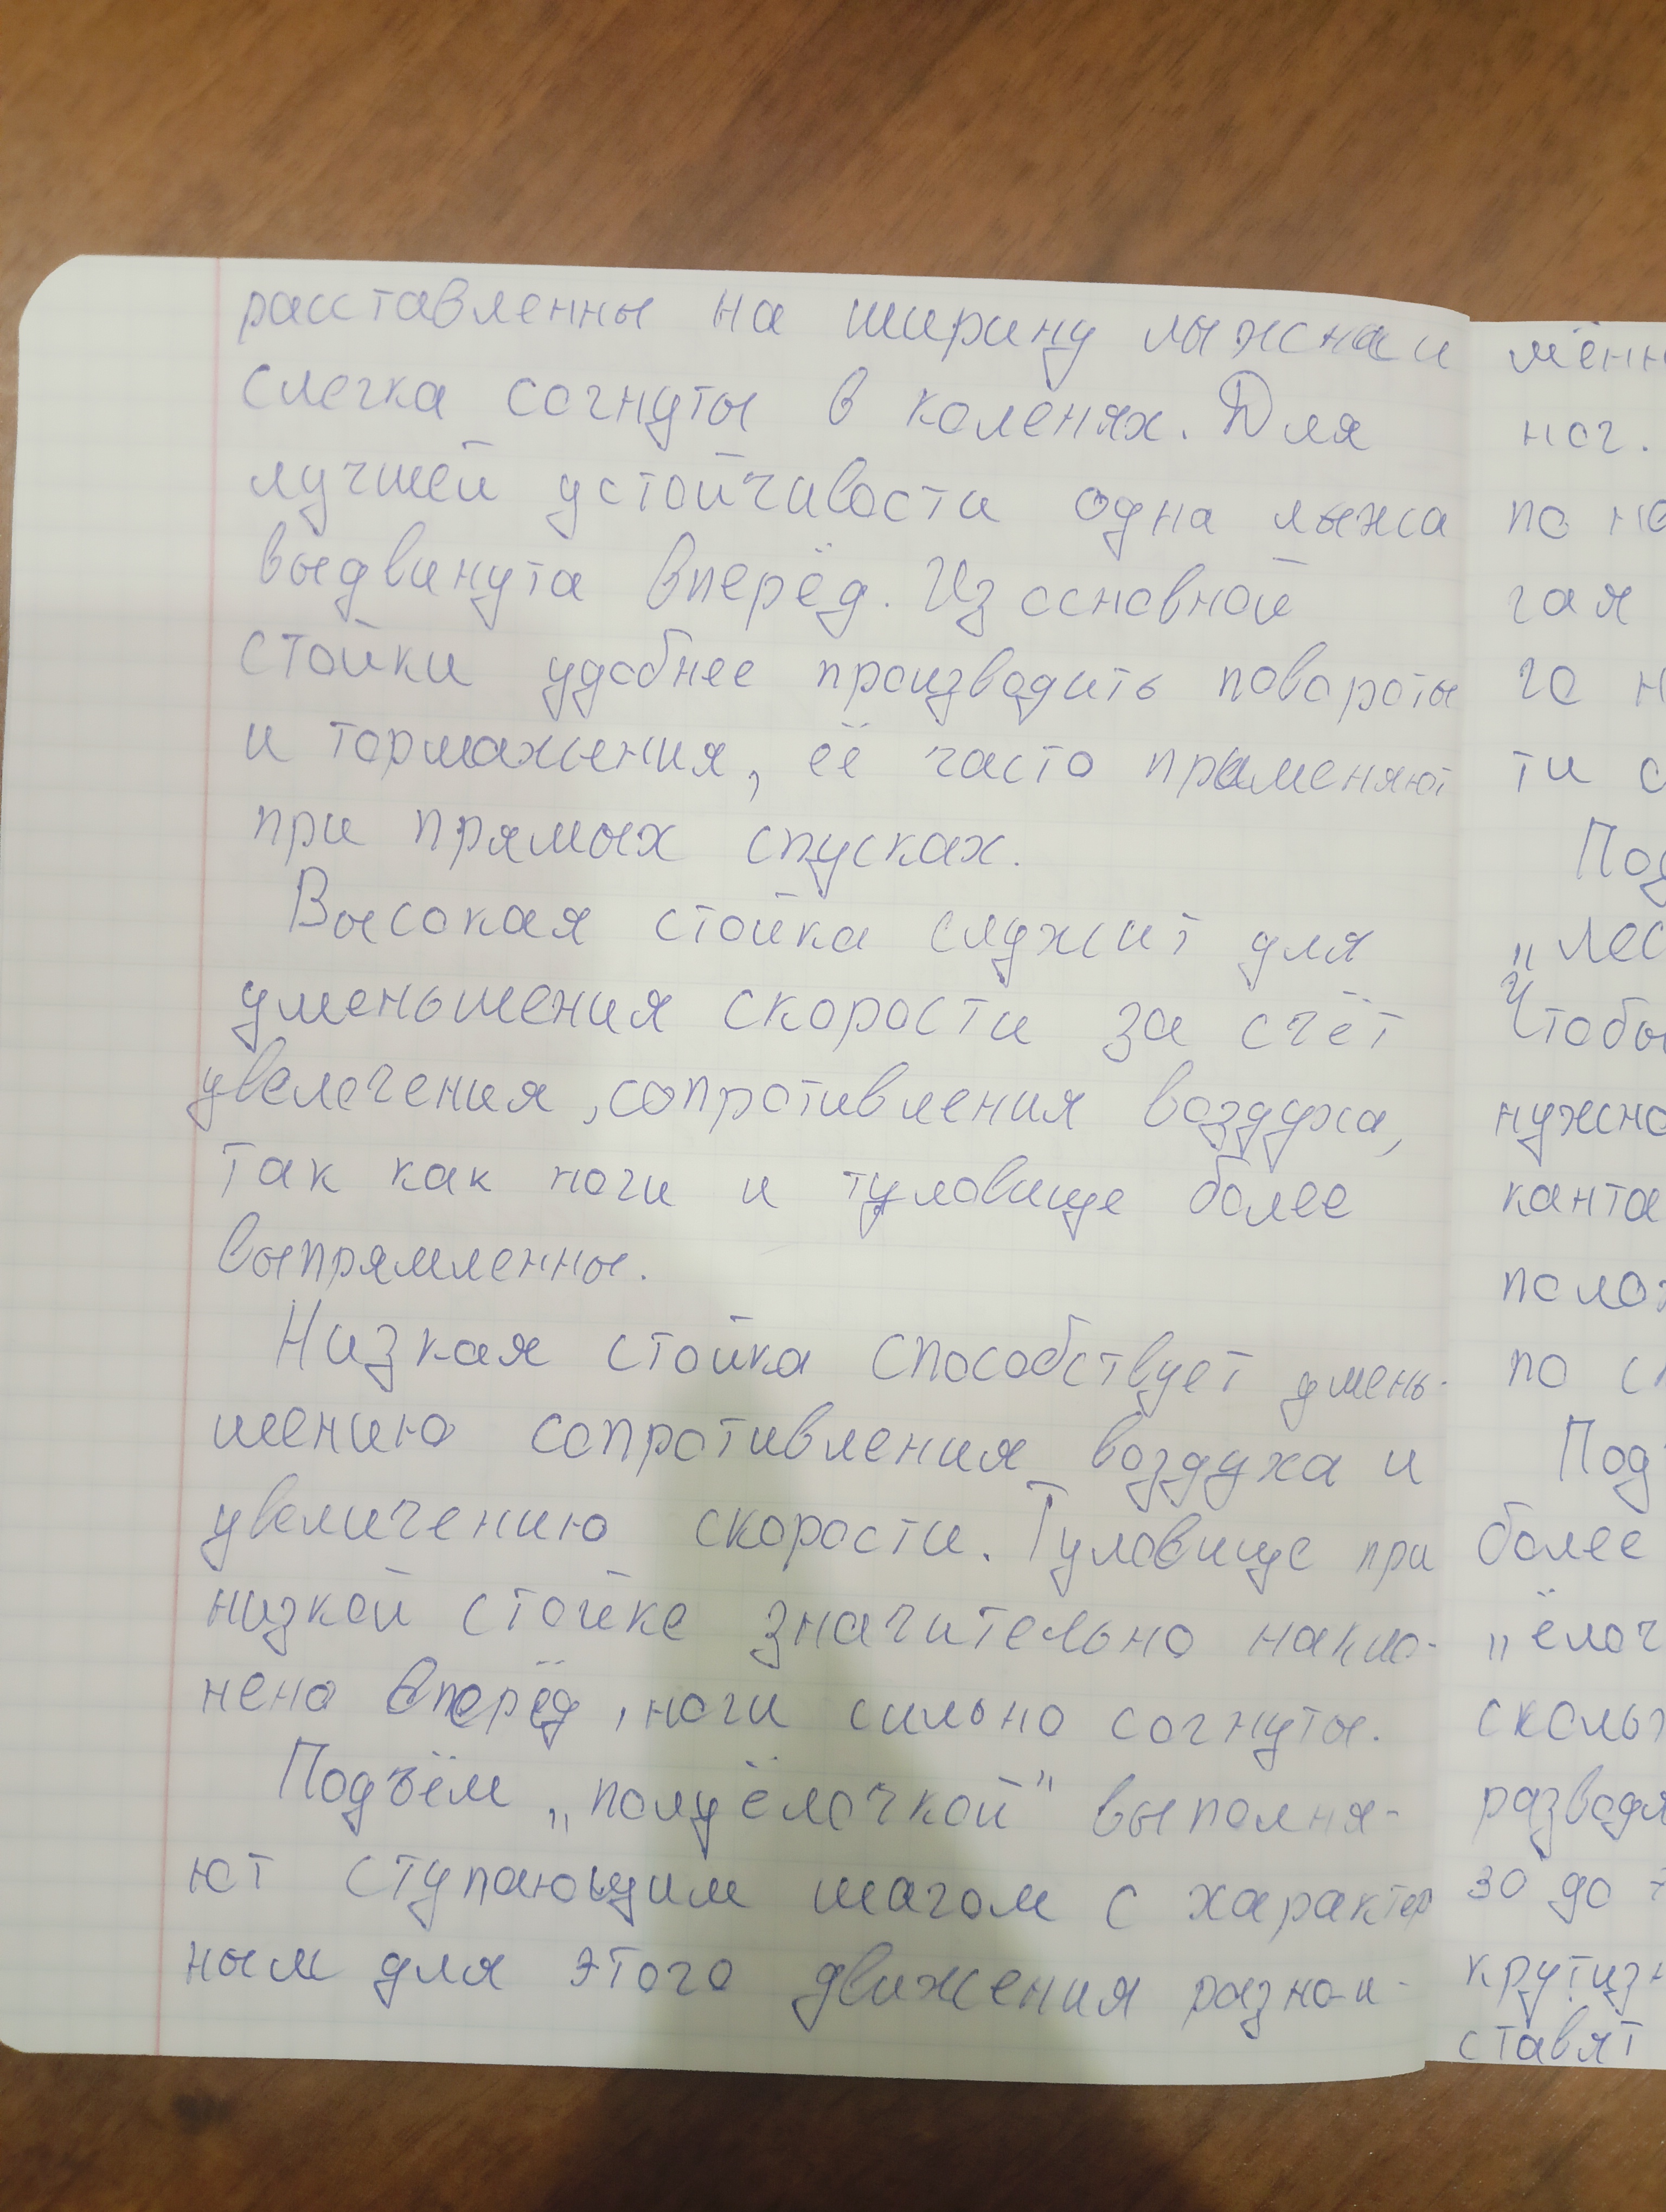 расставленны на ширину лыжна и
слегка согнуты в коленях. Для
лучшей устойчивости одна лыжа
выдвинута вперёд. Из основной
стойки удобнее производить повороты
и торможения, её часто применяют
при прямых спусках.
Высокая стойка служит для
уменьшения скорости за счёт
увелечения, сопротивления воздуха,
так как ноги и туловище более
выпрямленны.
Низкая стойка способствует умень-
шению сопротивления воздуха и
увеличению скорости. Туловище при
низкой стойке значительно накло-
нено вперёд, ноги сильно согнуты.
Подъём „полуёлочкой" выполня-
ют ступающим шагом с характер
ным для этого движения разно-и-
мённ
ног.
по на
гая
го н
ти с
Под
„лес
Чтобы
нужно
канта
полож
по ск
Подъ
более
„ёлоч
скольз
разводя
30 до
крутизн
ставят